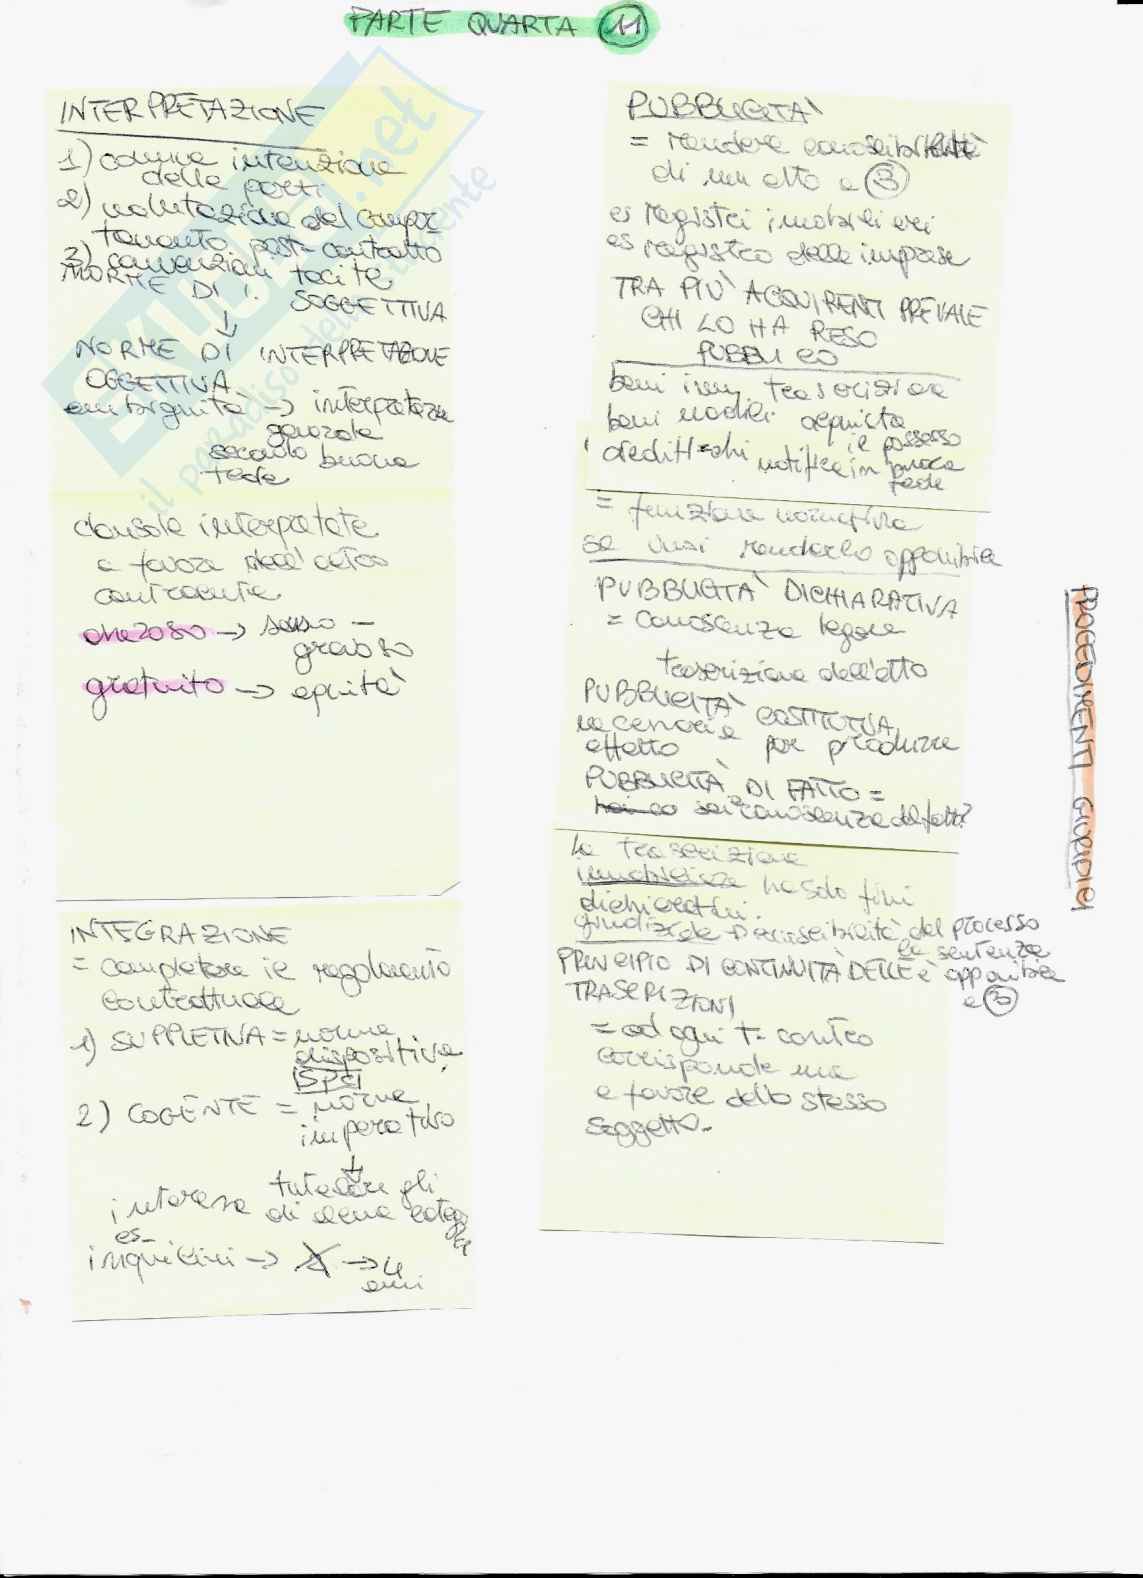 PARTE QUARTA 11
INTERPRETAZIONE
1) comune intenzione
delle parti
2) valutazione del compor
tamento post-contratto
3) convenzioni tacite
NORME DI I. SOGGETTIVA
↓
NORME DI INTERPRETAZIONE
OGGETTIVA
ambiguità → interpretaz
generale
secondo buona
fede
clausole interpretate
a favore dell'altro
contraente
oneroso → senso -
gravoso
gratuito → equità
INTEGRAZIONE
= completare il regolamento
contrattuale
1) SUPPLETIVA = norma
dispositiva
2) COGENTE = norma
imperativa
↓
tutelare gli
interessi di alcune categorie
es-
inquilini → → 4
anni
PUBBLICITÀ
= rendere conoscibil
di un atto a 3
es registri immobiliari
es registro delle imprese
TRA PIÙ ACQUIRENTI PREVALE
CHI LO HA RESO
PUBBLICO
beni imm. trascrizione
beni mobili acquista
il possesso
crediti → chi notifica in buona
fede
= funzione normativa
se vuoi renderlo opponibile
PUBBLICITÀ DICHIARATIVA
= conoscenza legale
trascrizione dell'atto
PUBBLICITÀ COSTITUTIVA
necessaria per produrre
effetto
PUBBLICITÀ DI FATTO =
sei a conoscenza del fatto?
La trascrizione
immobiliare ha solo fini
dichiarativi.
giudiziale → conoscibilità del processo
la sentenza
è opponibile
a 3
PRINCIPIO DI CONTINUITÀ DELLE
TRASCRIZIONI
= ad ogni t. contro
corrisponde una
a favore dello stesso
soggetto.
PROCEDIMENTI GIURIDICI
SKUOLA.net
il paradiso dello studente